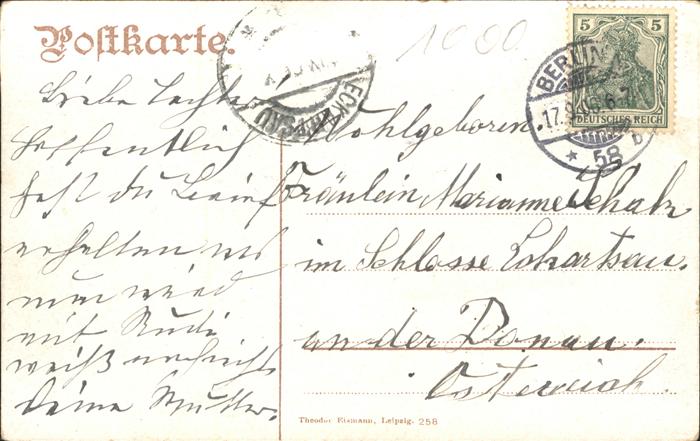 Postkarte.
1000
5 5
DEUTSCHES REICH
BERLIN
17.9.06.6-7
* 58
ECKARTSAU
Liebe Tochter
Hoffentlich
hast du Brief
erhalten und
nun wird
mit Rudi
weiß
Deine Mutter.
Wohlgeboren.
Fräulein Marianne Schalz
im Schlosse Eckartsau.
an der Donau.
Österreich.
Theodor Eismann, Leipzig. 258